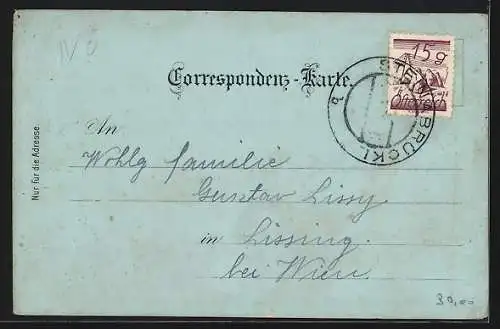 IV 5
15 g
Österreich
STEINABRÜCKL
a
Correspondenz-Karte.
An
Wohlg familie
Gustav Lissy
in Lissing.
bei Wien.
Nur für die Adresse.
30,00